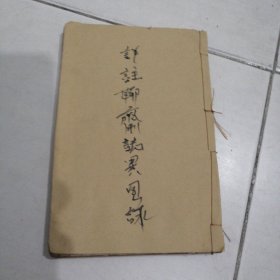 詳註聊齋誌異圖詠